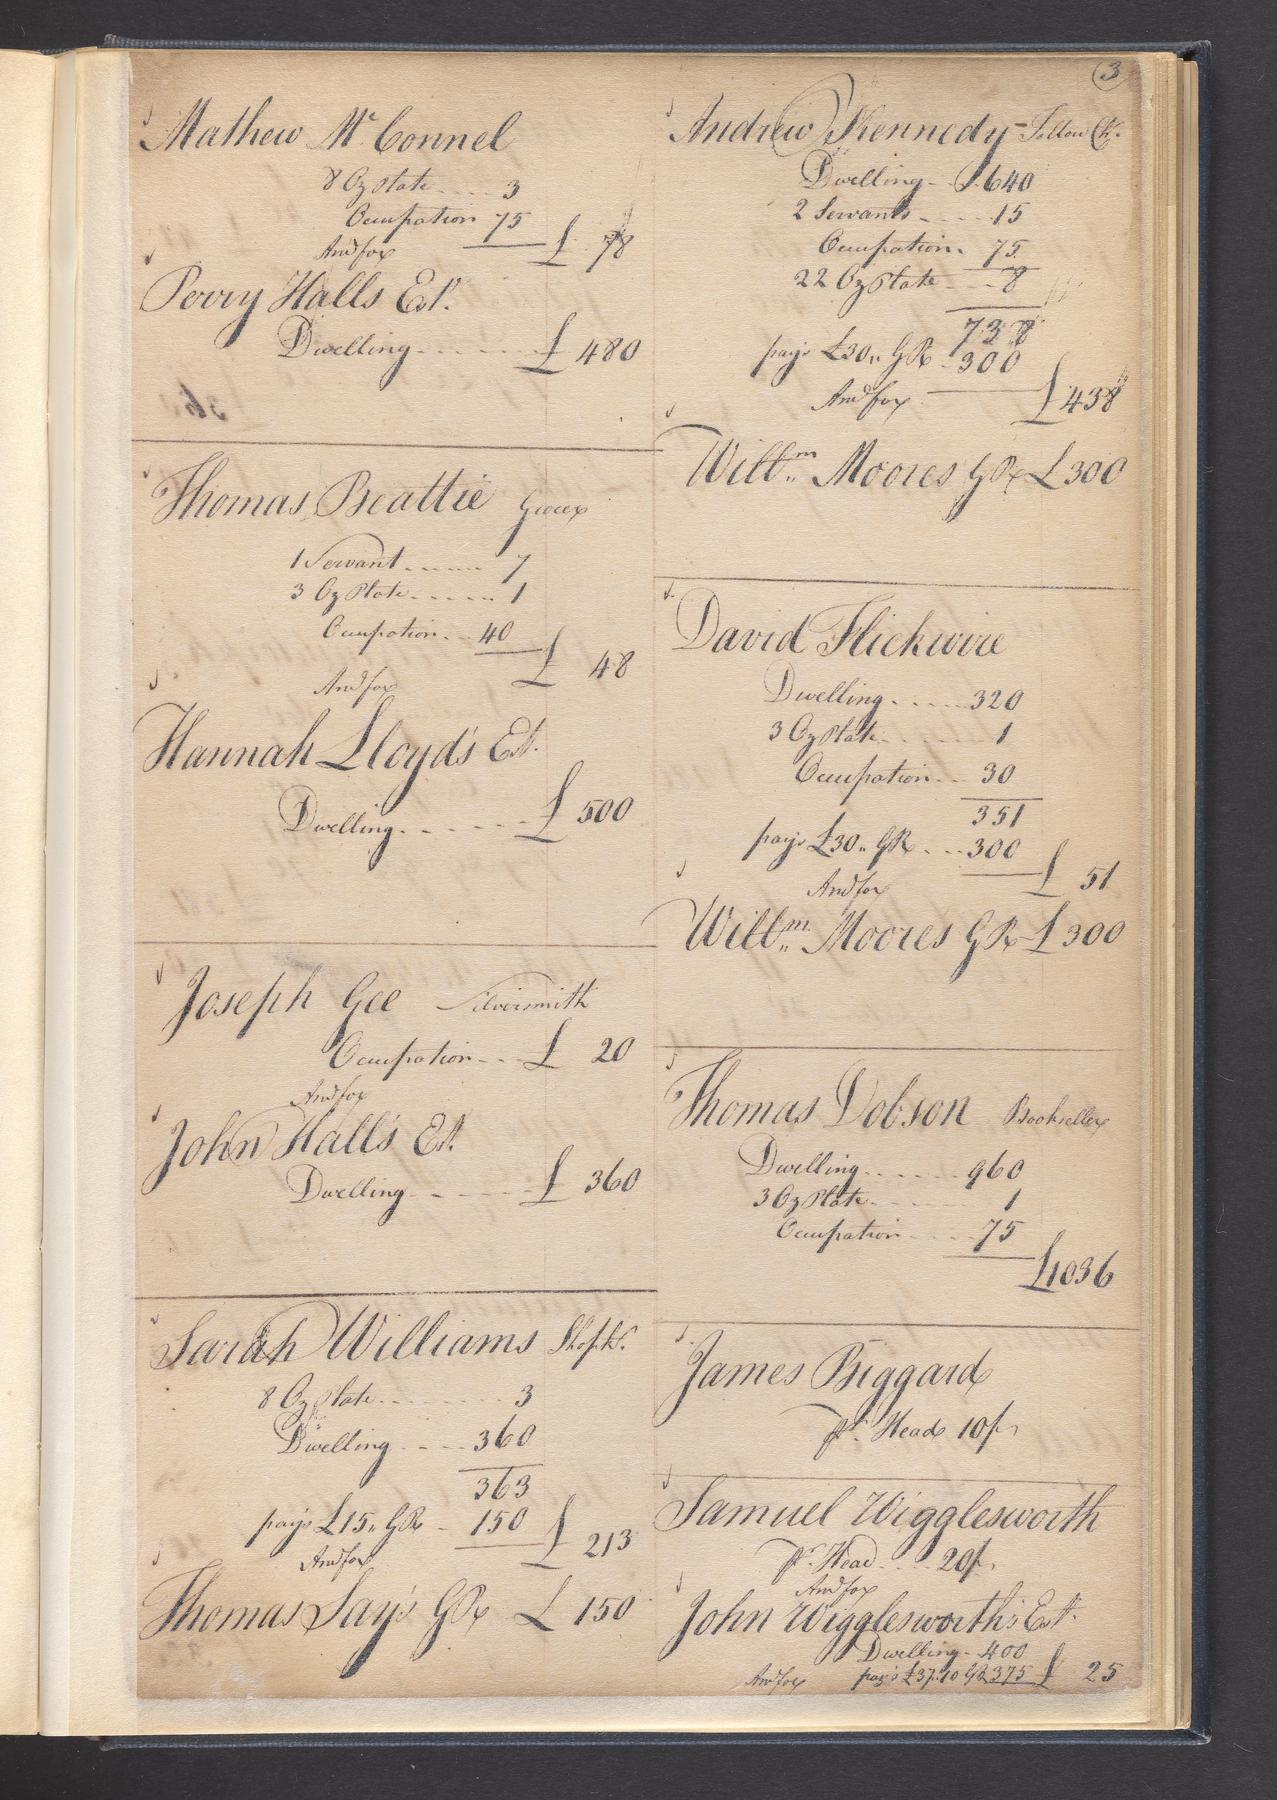 3
Mathew McConnel
8 Oz Plate 3
Occupation 75
£ 78
And for
Perry Halls Est.
Dwelling £ 480
Thomas Beattie Grocer
1 Servant 7
3 Oz Plate 1
Occupation 40
£ 48
And for
Hannah Lloyd's Est.
Dwelling £ 500
Joseph Gee Silversmith
Occupation £ 20
And for
John Hall's Est.
Dwelling £ 360
Sarah Williams Shopkr.
8 Oz Plate 3
Dwelling 360
363
pays £15 GR 150
£ 213
And for
Thomas Say's GR £ 150
Andrew Kennedy Tallow Ch.
Dwelling 640
2 Servants 15
Occupation 75
22 Oz Plate 8
738
pays £30 GR 300
£ 438
And for
Willm Moores GR £ 300
David Flickwire
Dwelling 320
3 Oz Plate 1
Occupation 30
351
pays £30 GR 300
£ 51
And for
Willm Moores GR £ 300
Thomas Dobson Bookseller
Dwelling 960
3 Oz Plate 1
Occupation 75
£1036
James Biggard
pr. Head 10/
Samuel Wigglesworth
pr. Head 20/
And for
John Wigglesworth's Est.
Dwelling 400
And for pays £37.10 GR 375 £ 25